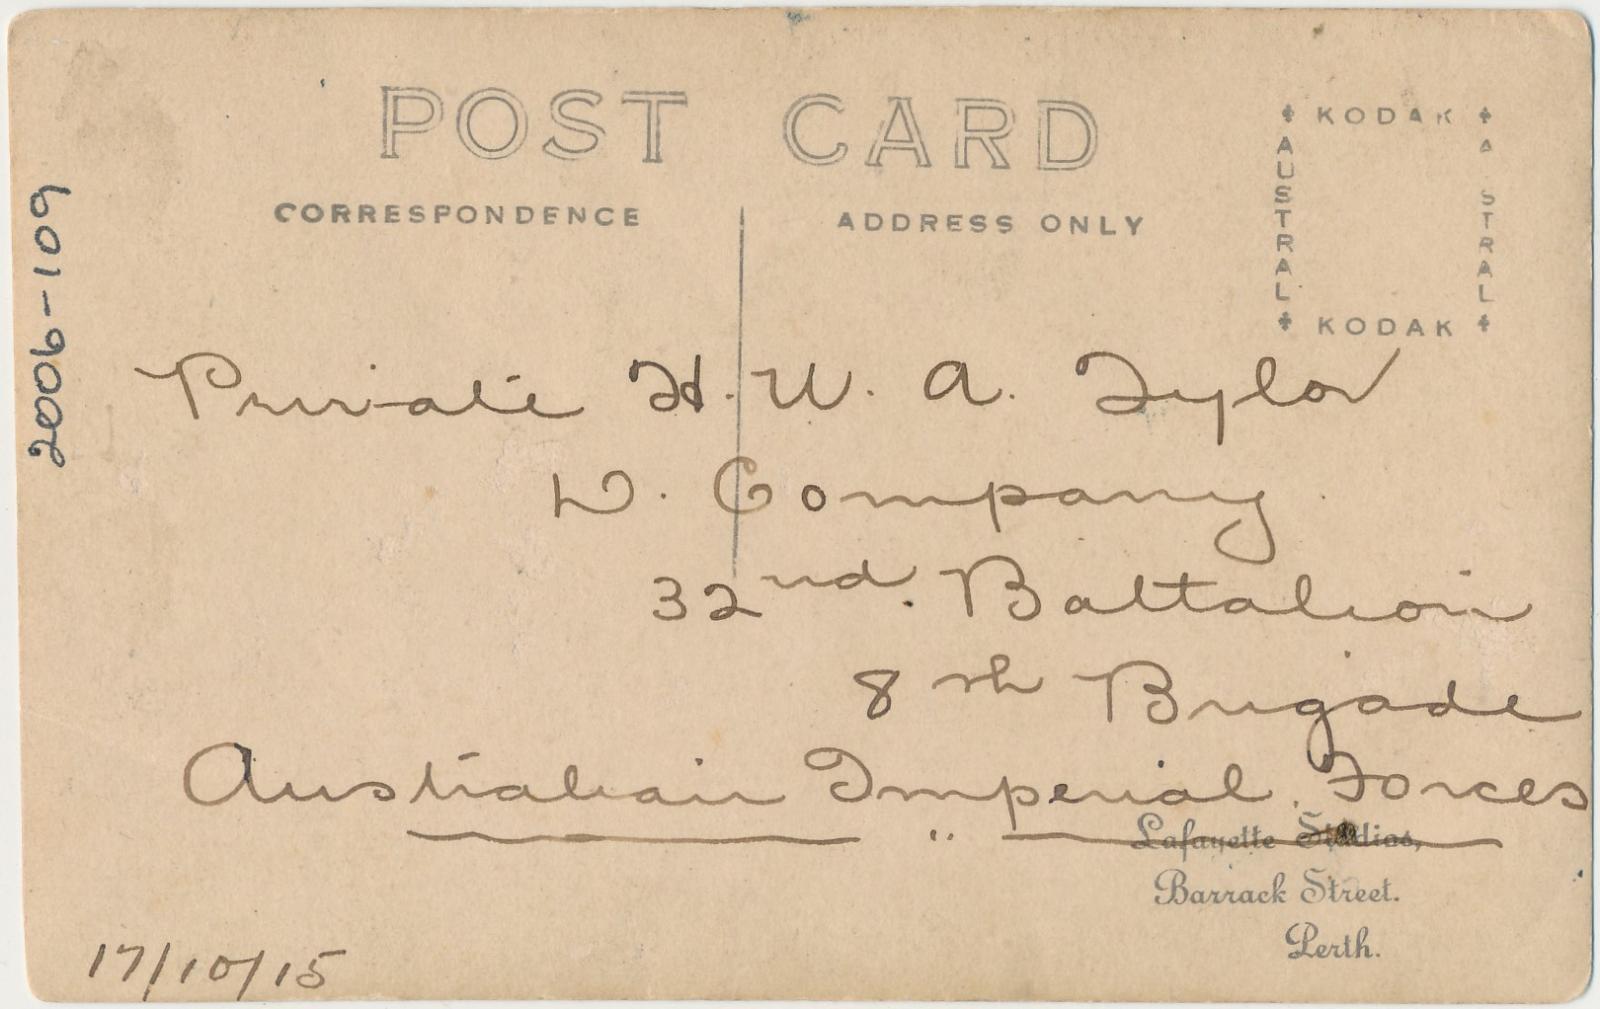 POST CARD
CORRESPONDENCE
ADDRESS ONLY
KODAK
AUSTRAL
A STRAL
KODAK
2006-109
Private H. W. A. Tylor
D. Company
32nd. Battalion
8th Brigade
Australian Imperial Forces
Lafayette Studios,
Barrack Street.
Perth.
17/10/15